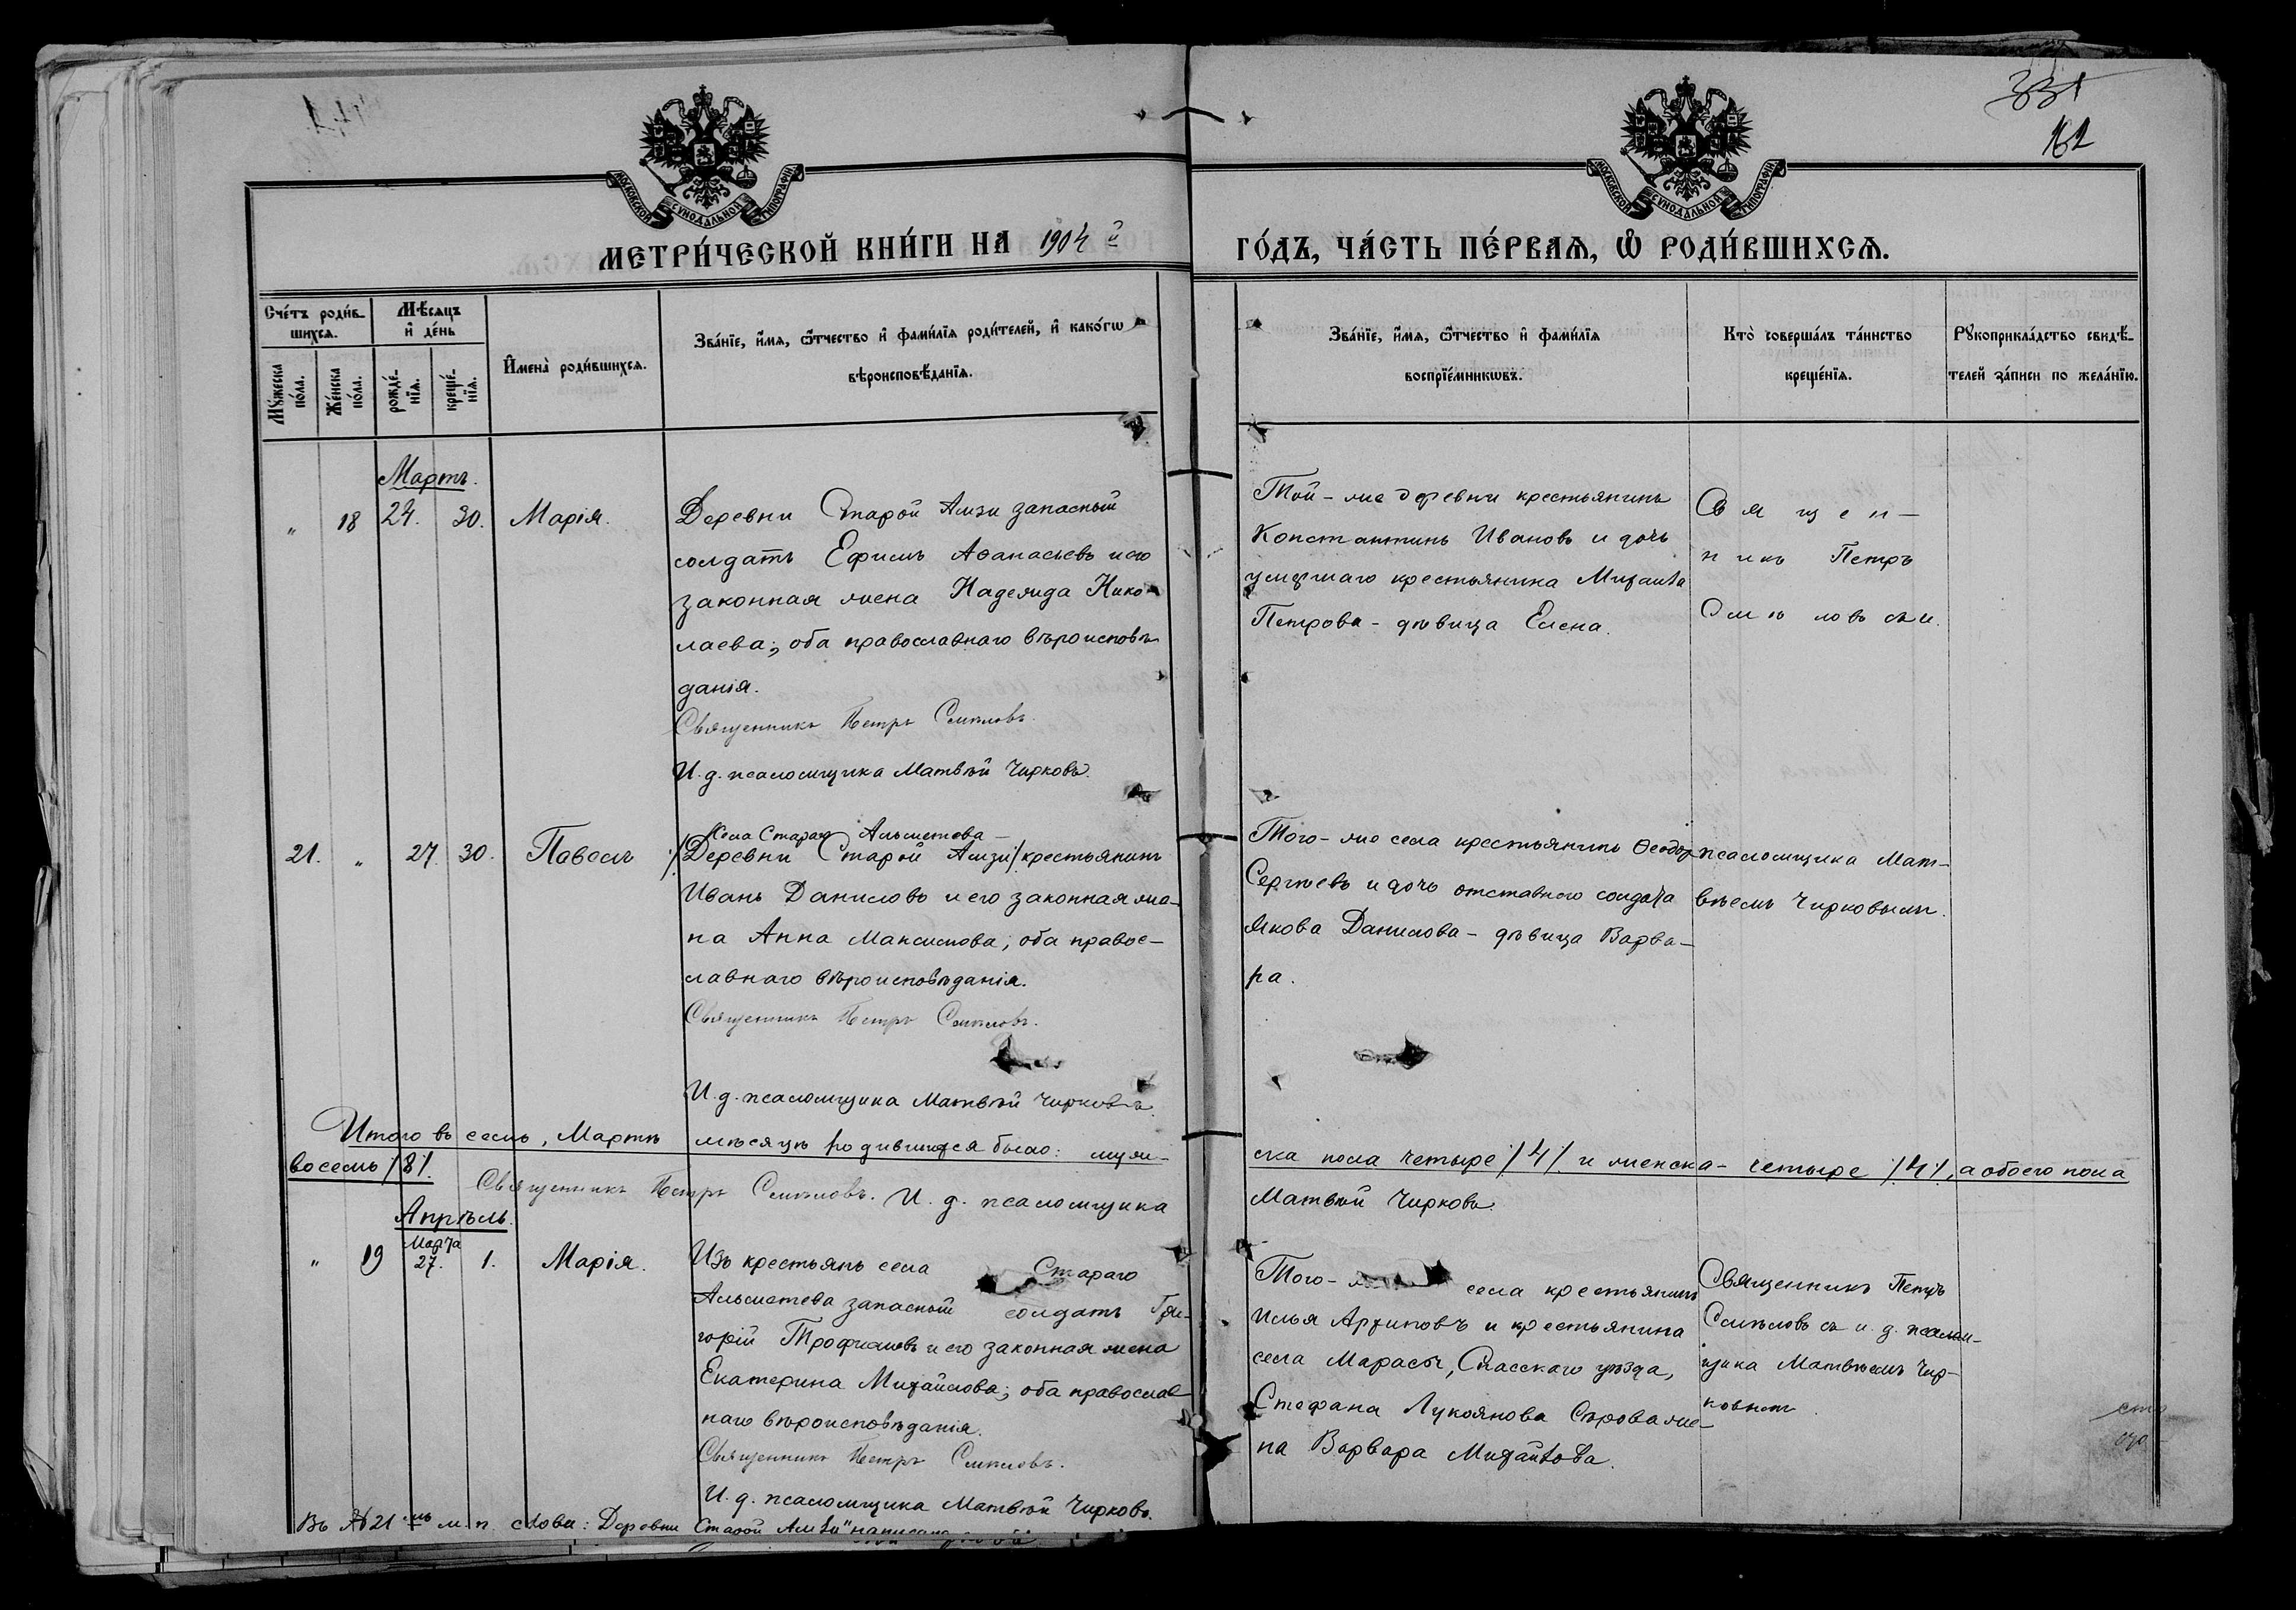 331
12
МОСКОВСКОЙ СѴНОДАЛЬНОЙ ТИПОГРАФІИ
МОСКОВСКОЙ СѴНОДАЛЬНОЙ ТИПОГРАФІИ
МЕТРИ́ЧЕСКОЙ КНИ́ГИ НА 1904 й
ГО́ДЪ, ЧА́СТЬ ПЕ́РВАЯ, Ѡ РОДИ́ВШИХСЯ.
Сче́тъ роди́в-
шихся.
Мѣ́сяцъ
и де́нь
Мꙋ́жеска
по́ла.
Же́нска
по́ла.
рожде́-
нїя.
креще́-
нїя.
Имена̀ роди́вшихся.
Зва́нїе, и́мя, ѻ҆́тчество и фами́лїя роди́телей, и како́гѡ
вѣроисповѣ́данїя.
Зва́нїе, и́мя, ѻ҆́тчество и фами́лїя
воспрїе́мникѡвъ.
Кто̀ соверша́лъ та́инство
креще́нїя.
Рꙋкоприкла́дство свидѣ́-
телей за́писи по жела́нїю.
Мартъ.
" 18 24. 30. Марія.
Деревни Старой Амзи запасный
солдатъ Ефимъ Аѳанасьевъ и его
законная жена Надежда Нико-
лаева; оба православнаго вѣроисповѣ-
данія.
Священникъ Петръ Смѣловъ.
И. д. псаломщика Матвѣй Чирковъ.
Той-же деревни крестьянинъ
Константинъ Ивановъ и дочь
умершаго крестьянина Михаила
Петрова - дѣвица Елена.
Священ-
никъ Петръ
Смѣловъ съ и.
21. " 27. 30. Павелъ
Села Стараго Альметева -
/Деревни Старой Амзи/ крестьянинъ
Иванъ Даниловъ и его законная же-
на Анна Максимова; оба право-
славнаго вѣроисповѣданія.
Священникъ Петръ Смѣловъ.
И. д. псаломщика Матвѣй Чирковъ.
Того-же села крестьянинъ Ѳеодоръ
Сергѣевъ и дочь отставного солдата
Якова Данилова - дѣвица Варва-
ра.
псаломщика Мат-
вѣемъ Чирковымъ.
Итого въ семъ, Мартѣ мѣсяцѣ родившихся было: муже-
ска пола четыре /4/ и женска - четыре /4/, а обоего пола
восемь /8/.
Священникъ Петръ Смѣловъ. И. д. псаломщика
Матвѣй Чирковъ.
Апрѣль.
" 19 Марта 27. 1. Марія.
Изъ крестьянъ села Стараго
Альметева запасный солдатъ Гри-
горій Трофимовъ и его законная жена
Екатерина Михайлова; оба православ-
наго вѣроисповѣданія.
Священникъ Петръ Смѣловъ.
И. д. псаломщика Матвѣй Чирковъ.
Того- села крестьянинъ
Илья Архиповъ и крестьянина
села Марасы, Спасскаго уѣзда,
Стефана Лукоянова Сѣрова же-
на Варвара Михайлова.
Священникъ Петръ
Смѣловъ съ и. д. псалом-
щика Матвѣемъ Чир-
ковымъ.
Въ № 21-мъ м. п. слова: Деревни Старой Амзи" написано